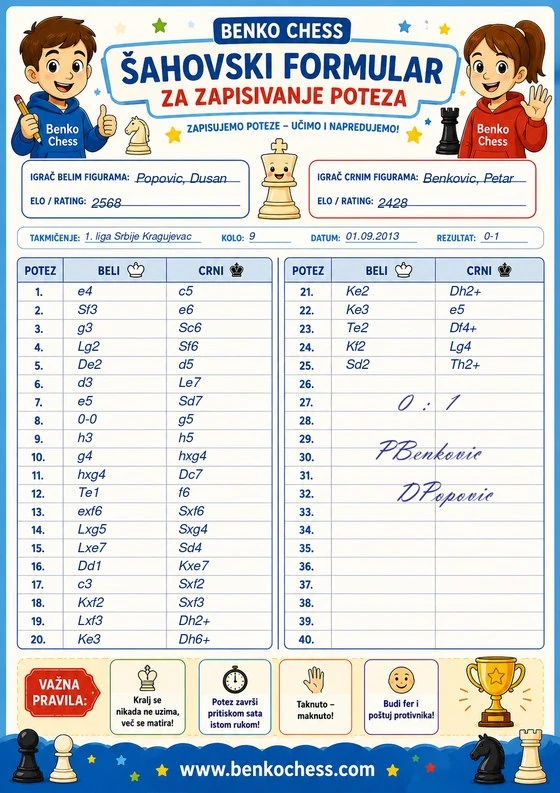 BENKO CHESS
ŠAHOVSKI FORMULAR
ZA ZAPISIVANJE POTEZA
ZAPISUJEMO POTEZE – UČIMO I NAPREDUJEMO!
Benko Chess
Benko Chess
IGRAČ BELIM FIGURAMA: Popovic, Dusan
ELO / RATING: 2568
IGRAČ CRNIM FIGURAMA: Benkovic, Petar
ELO / RATING: 2428
TAKMIČENJE: 1. liga Srbije Kragujevac KOLO: 9 DATUM: 01.09.2013 REZULTAT: 0-1
POTEZ BELI CRNI
1. e4 c5
2. Sf3 e6
3. g3 Sc6
4. Lg2 Sf6
5. De2 d5
6. d3 Le7
7. e5 Sd7
8. 0-0 g5
9. h3 h5
10. g4 hxg4
11. hxg4 Dc7
12. Te1 f6
13. exf6 Sxf6
14. Lxg5 Sxg4
15. Lxe7 Sd4
16. Dd1 Kxe7
17. c3 Sxf2
18. Kxf2 Sxf3
19. Lxf3 Dh2+
20. Ke3 Dh6+
POTEZ BELI CRNI
21. Ke2 Dh2+
22. Ke3 e5
23. Te2 Df4+
24. Kf2 Lg4
25. Sd2 Th2+
26.
27. 0 : 1
28.
29.
30. PBenkovic
31.
32. DPopovic
33.
34.
35.
36.
37.
38.
39.
40.
VAŽNA PRAVILA:
Kralj se nikada ne uzima, već se matira!
Potez završi pritiskom sata istom rukom!
Taknuto – maknuto!
Budi fer i poštuj protivnika!
www.benkochess.com